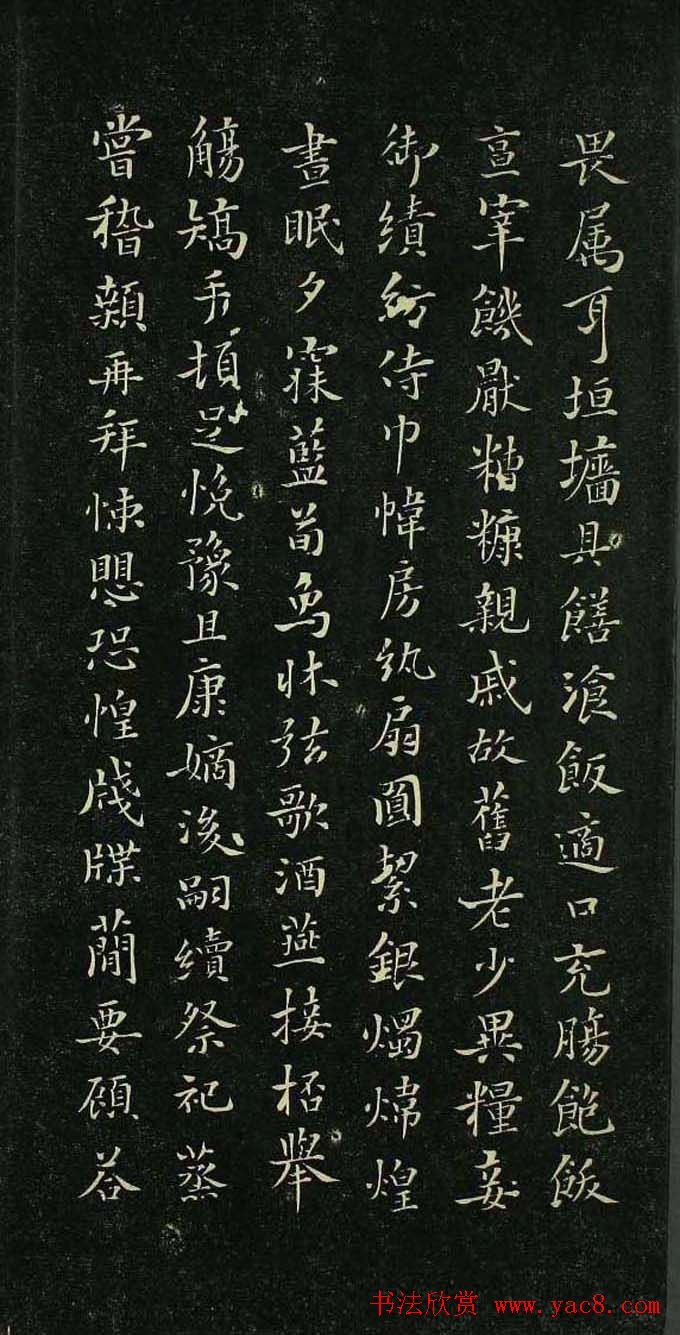 畏属耳垣墻具饍飡飯適口充腸飽飫
亯宰饑厭糟糠親戚故舊老少異糧妾
御績紡侍巾幃房紈扇圓絜銀燭煒煌
晝眠夕寐藍筍象牀弦歌酒燕接杯舉
觴矯手頓足悅豫且康嫡後嗣續祭祀蒸
嘗稽顙再拜悚懼恐惶牋牒蕳要顧荅
书法欣赏 www.yac8.com